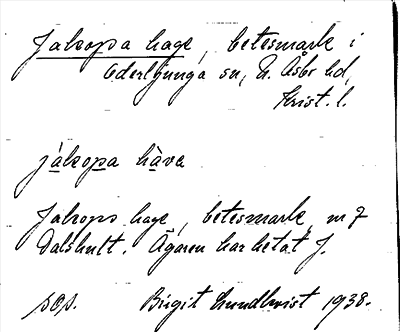 Jakopa hage, betesmark i
Oderljunga sn, N. Åsbo hd,
Krist. l.
jakopa hava
Jakops hage, betesmark, m 7
Dalshult. Ägaren har hetat J.
sos. Birgit Lundkvist 1938.